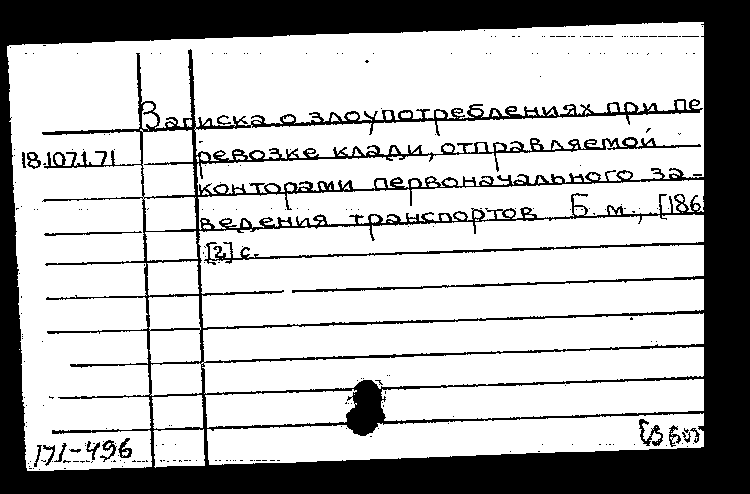 Записка о злоупотреблениях при пе
18.107.1.71 ревозке клади, отправляемой
конторами первоначального за-
ведения транспортов. Б. м., [186
[2] с.
171-496